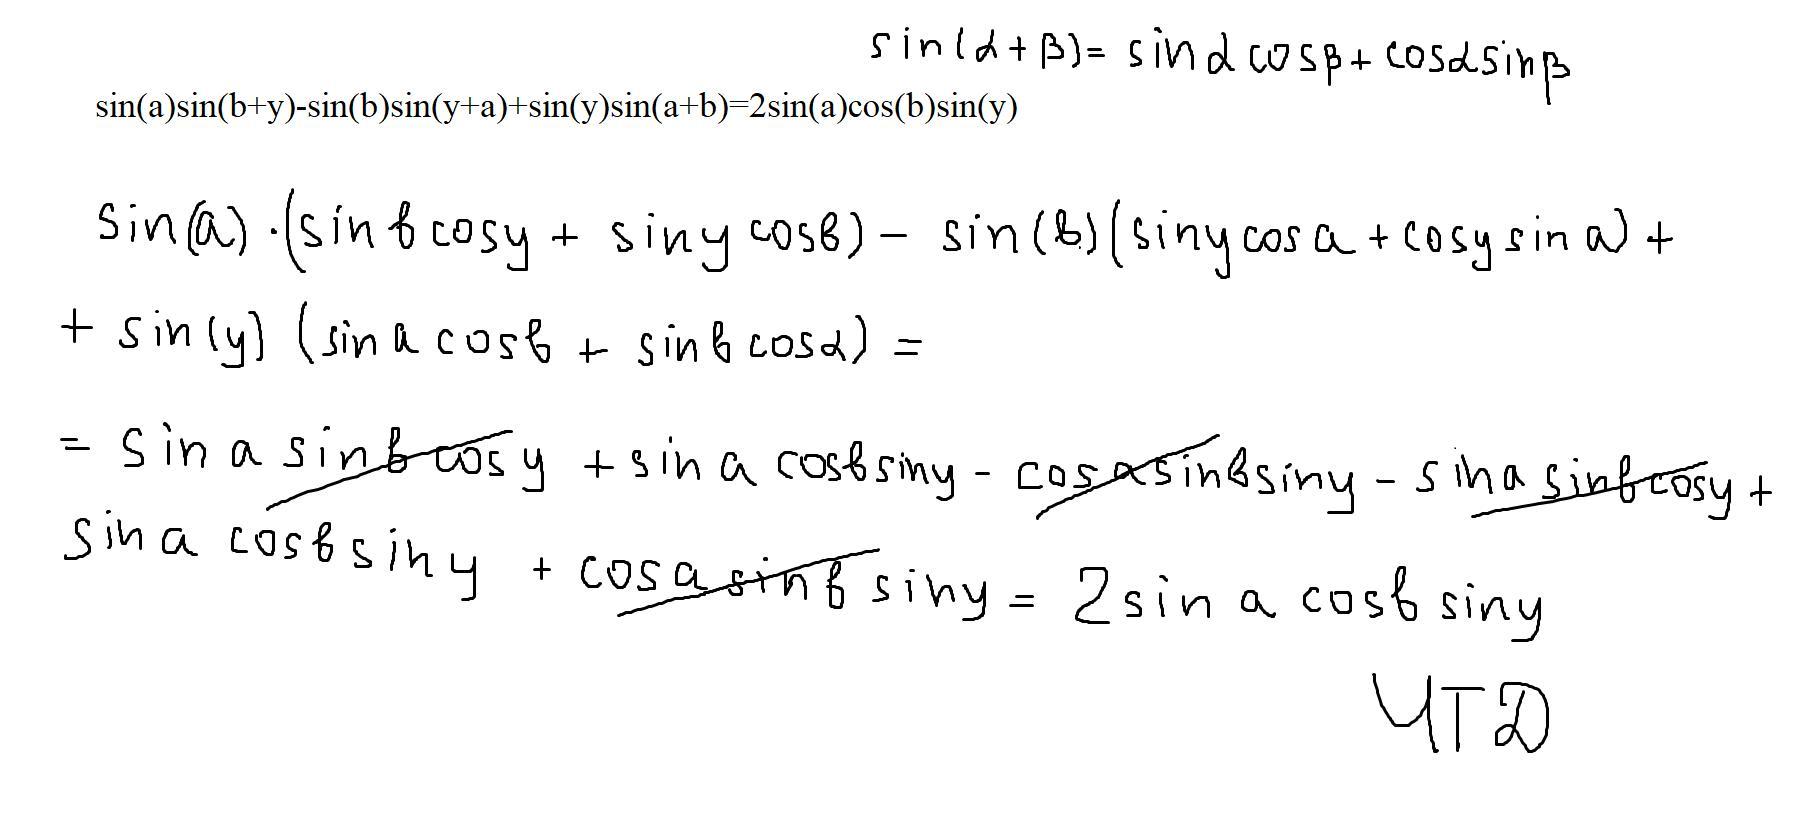 sin(α+β)= sinα cosβ + cosα sinβ
sin(a)sin(b+y)-sin(b)sin(y+a)+sin(y)sin(a+b)=2sin(a)cos(b)sin(y)
sin(a)·(sin b cos y + sin y cos b) - sin(b)(sin y cos a + cos y sin a) +
+ sin(y) (sin a cos b + sin b cos α) =
= sin a sin b cos y + sin a cos b sin y - cos a sin b sin y - sin a sin b cos y +
sin a cos b sin y + cos a sin b sin y = 2 sin a cos b sin y
ЧТД